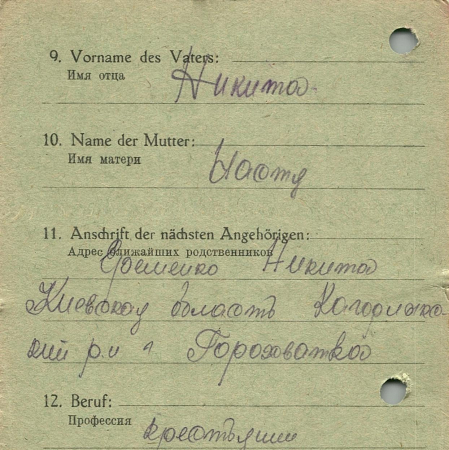 9. Vorname des Vaters:
Имя отца
Никита
10. Name der Mutter:
Имя матери
Настя
11. Anschrift der nächsten Angehörigen:
Адрес ближайших родственников
Еременко Никита
Киевская область Кагорлыкс-
кий р.н Гороховатка
12. Beruf:
Профессия
крестьянин